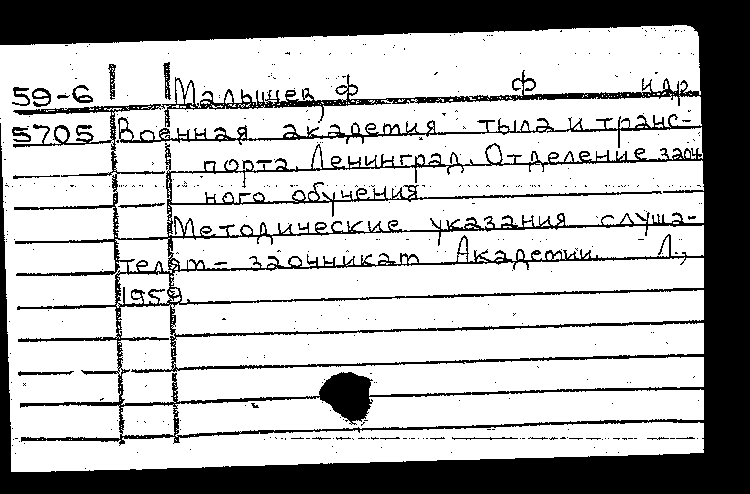 59-6 Малышев, Ф Ф идр
5705 Военная академия тыла и транс-
порта. Ленинград. Отделение заоч
ного обучения
Методические указания слуша-
телям - заочникам Академии. Л.,
1959.